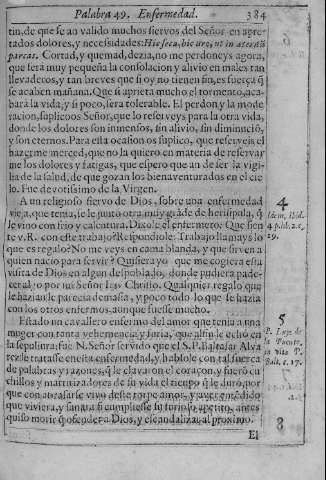 Palabra 49. Enfermedad. 384
tin, de que se an valido muchos siervos del Señor en apre
tados dolores, y necessidades: Hic seca, hic ure, ut in æternũ
parcas. Cortad, y quemad, dezia, no me perdoneys agora,
que sera muy pequeña la consolacion y alivio en males tan
llevaderos, y tan breves que si oy no tienen fin, es fuerça q̃
se acaben mañana. Que si aprieta mucho el tormento, aca
bará la vida, y si poco, sera tolerable. El perdon y la mode
racion, suplicoos Señor, que lo reserveys para la otra vida,
donde los dolores son inmensos, sin alivio, sin diminució,
y son eternos. Para esta ocasion os suplico, que reserveis el
hazerme merced, que no la quiero en materia de reservar
me los dolores y fatigas, que espero que an de ser la vigi
lia de la salud, de que gozan los bienaventurados en el cie
lo. Fue devotissimo de la Virgen.
A un religioso siervo de Dios, sobre una enfermedad
vieja, que tenia, le le juntó otra muy gráde de herisipula, q̃
le vino con frio y calentura. Dixole el enfermero: Que sien
te v. R. con este trabajo? Respondiole: Trabajo llamays lo
que es regalo? No me veys en cama blanda, y que sirven a
quien nacio para servir? Quisiera yo que me cogiera esta
visita de Dios en algun despoblado, donde pudiera pade-
cer algo por mi Señor Iesu Christo. Qualquier regalo que
le hazian le parecia demasia, y poco todo lo que se hazia
con los otros enfermos, aun que fuesse mucho.
Estado un cavallero enfermo del amor que tenia a una
muger con tanta vehemencia y furia, que al fin le echó en
la sepultura; fue N. Señor servido que el S. P. Baltasar Alva
rez le tratasse en esta enfermedad, y hablole con tal fuerça
de palabras y razones, q̃ le clavaron el coraçon, y fueró cu
chillos y martirizadores de su vida el tiempo q̃ le duró, por
que con abrasarse vivo deste torpe amor, y aver medido
que viviera, y sanara si cumpliesse su furioso apetito, antes
quiso morir q̃ ofender a Dios, y escandalizar al proximo.
El
4
Idem, ibid.
4. p. lib. 2. c.
19.
5
P. Luys de
la Puente,
la vita P.
Balt. c. 17.
8